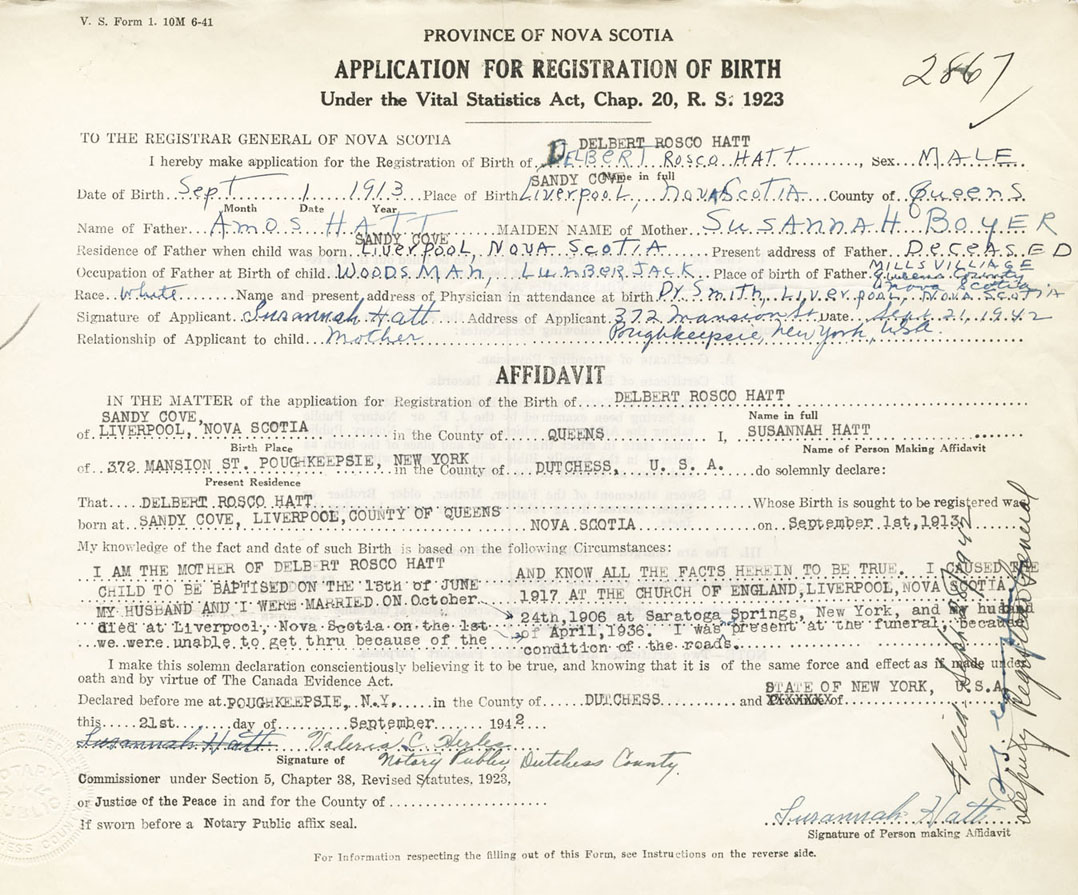 V. S. Form 1. 10M 6-41
PROVINCE OF NOVA SCOTIA
APPLICATION FOR REGISTRATION OF BIRTH
2867
Under the Vital Statistics Act, Chap. 20, R. S. 1923
TO THE REGISTRAR GENERAL OF NOVA SCOTIA
DELBERT ROSCO HATT
I hereby make application for the Registration of Birth of DELBERT ROSCO HATT, Sex MALE
SANDY COVE Name in full
Date of Birth Sept 1 1913 Place of Birth Liverpool, Nova Scotia County of Queens
Month Date Year
Name of Father Amos HATT MAIDEN NAME of Mother SUSANNAH BOYER
SANDY COVE
Residence of Father when child was born LIVERPOOL, NOVA SCOTIA Present address of Father DECEASED
MILLSVILLAGE
Occupation of Father at Birth of child WOODSMAN, LUMBERJACK Place of birth of Father Queens County
Nova Scotia
Race White Name and present address of Physician in attendance at birth Dr Smith, Liverpool, Nova Scotia
Signature of Applicant Susannah Hatt Address of Applicant 372 Mansion St, Date Sept. 21, 1942
Relationship of Applicant to child Mother Poughkeepsie, New York, USA.
AFFIDAVIT
IN THE MATTER of the application for Registration of the Birth of DELBERT ROSCO HATT
SANDY COVE, Name in full
of LIVERPOOL, NOVA SCOTIA in the County of QUEENS I, SUSANNAH HATT
Birth Place Name of Person Making Affidavit
of 372 MANSION ST. POUGHKEEPSIE, NEW YORK in the County of DUTCHESS, U. S. A. do solemnly declare:
Present Residence
That DELBERT ROSCO HATT Whose Birth is sought to be registered was
born at SANDY COVE, LIVERPOOL, COUNTY OF QUEENS NOVA SCOTIA on September 1st, 1913
My knowledge of the fact and date of such Birth is based on the following Circumstances:
I AM THE MOTHER OF DELBERT ROSCO HATT AND KNOW ALL THE FACTS HEREIN TO BE TRUE. I CAUSED THE
CHILD TO BE BAPTISED ON THE 18th of JUNE 1917 AT THE CHURCH OF ENGLAND, LIVERPOOL, NOVA SCOTIA
MY HUSBAND AND I WERE MARRIED ON October 24th, 1906 at Saratoga Springs, New York, and my husband
died at Liverpool, Nova Scotia on the 1st of April, 1936. I was present at the funeral, because
we were unable to get thru because of the condition of the roads.
I make this solemn declaration conscientiously believing it to be true, and knowing that it is of the same force and effect as if made under
oath and by virtue of The Canada Evidence Act.
STATE OF NEW YORK, U.S.A.
Declared before me at POUGHKEEPSIE, N.Y. in the County of DUTCHESS and Province of
this 21st day of September 1942
Susannah Hatt Valeria C.
Signature of Notary Public, Dutchess County.
Commissioner under Section 5, Chapter 38, Revised Statutes, 1923,
or Justice of the Peace in and for the County of
If sworn before a Notary Public affix seal.
Susannah Hatt
Signature of Person making Affidavit
For Information respecting the filling out of this Form, see Instructions on the reverse side.
Filed Sept
1942
Deputy Registrar General
NOTARY
PUBLIC